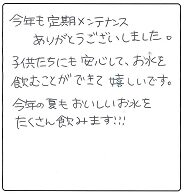 今年も定期メンテナンス
ありがとうございしました。
子供たちにも安心して、お水を
飲むことができて嬉しいです。
今年の夏もおいしいお水を
たくさん飲みます!!!